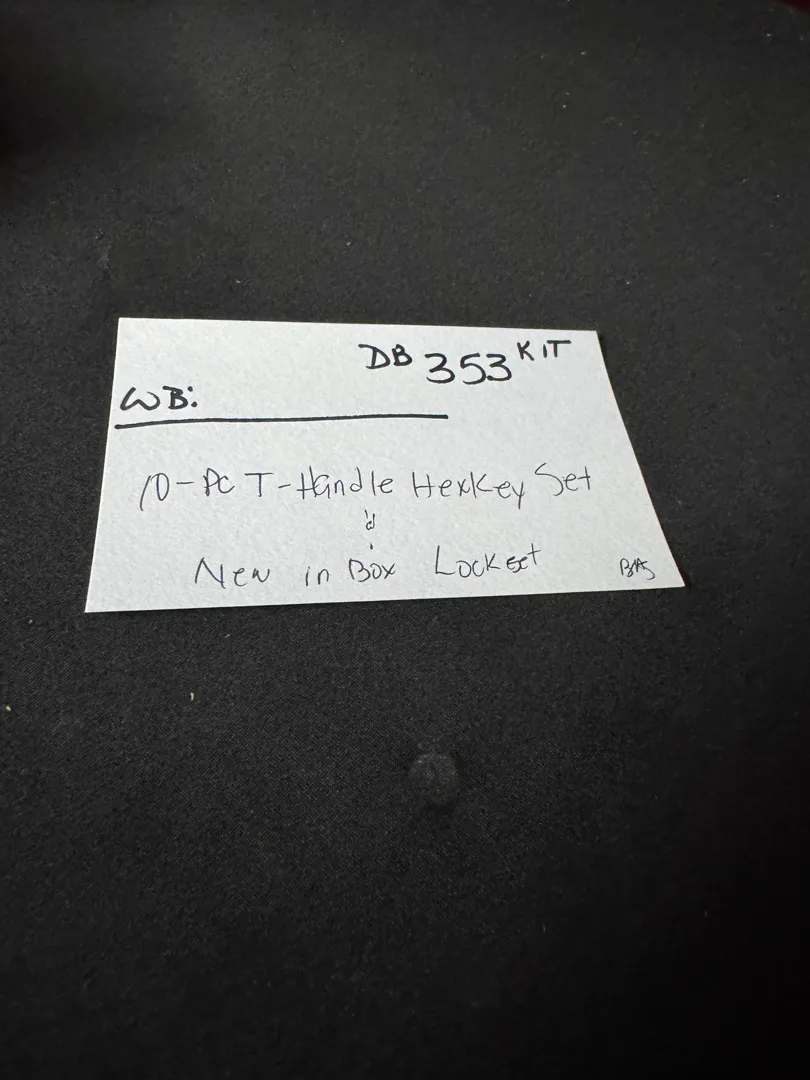 DB 353 KIT
WB:
10-PC T-Handle Hexkey Set
&
New in Box Lockset